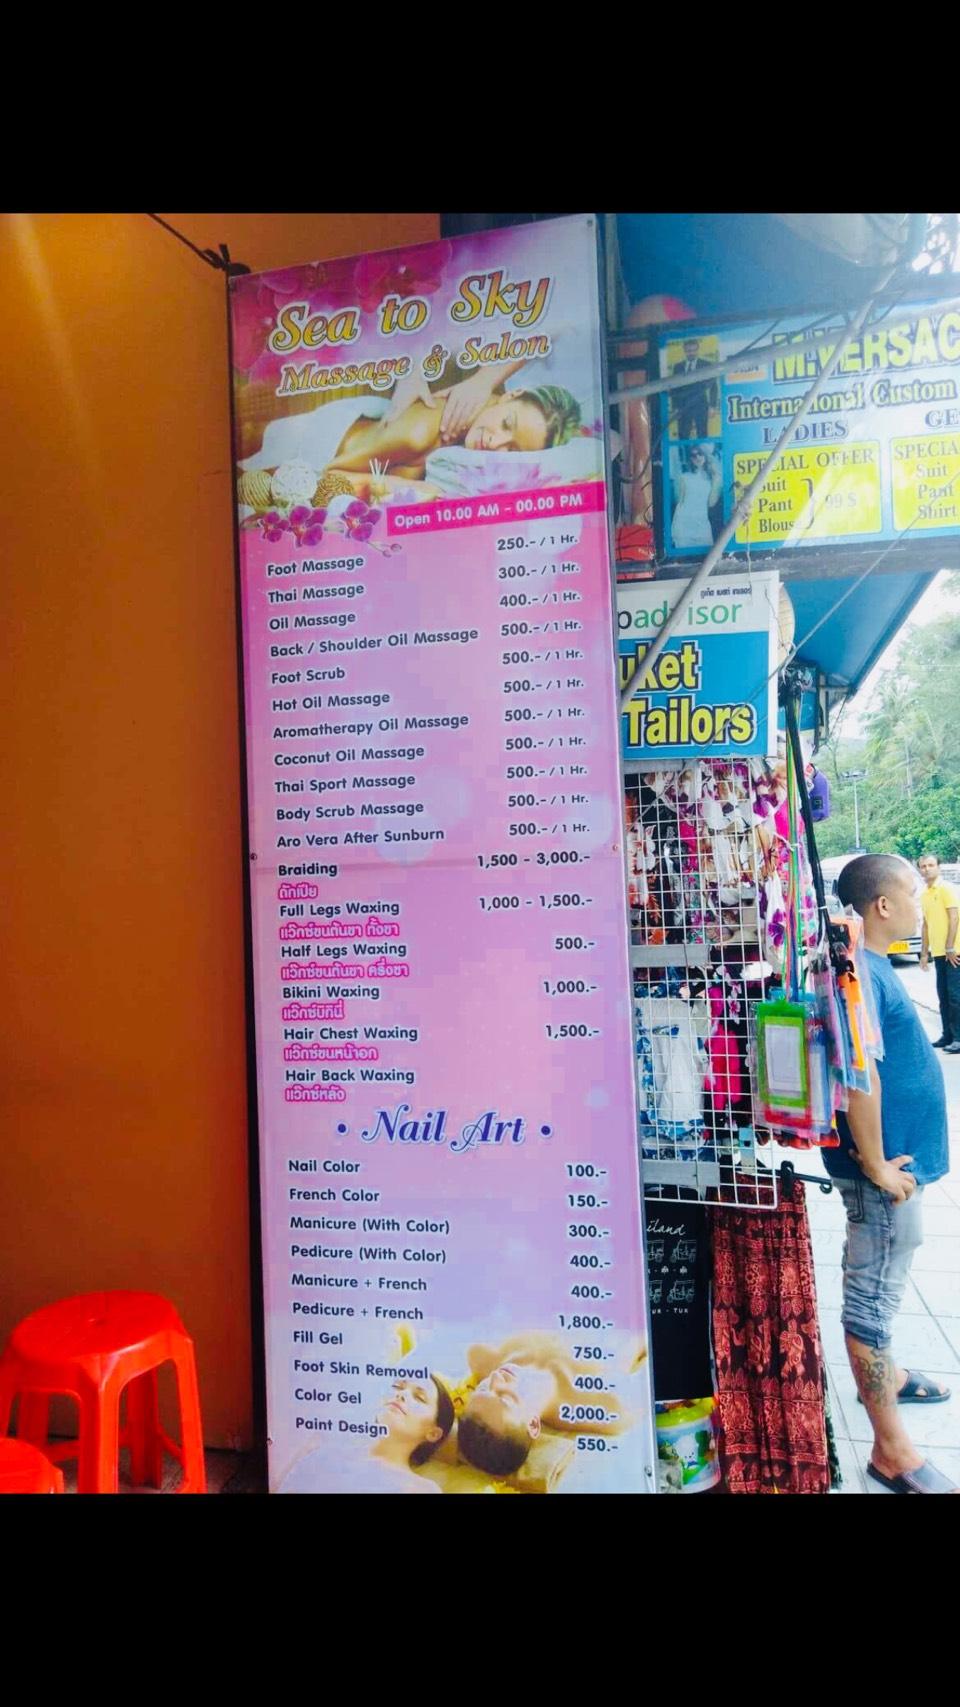 Sea to Sky
Massage & Salon
Open 10.00 AM - 00.00 PM
Foot Massage 250.- / 1 Hr.
Thai Massage 300.- / 1 Hr.
Oil Massage 400.- / 1 Hr.
Back / Shoulder Oil Massage 500.- / 1 Hr.
Foot Scrub 500.- / 1 Hr.
Hot Oil Massage 500.- / 1 Hr.
Aromatherapy Oil Massage 500.- / 1 Hr.
Coconut Oil Massage 500.- / 1 Hr.
Thai Sport Massage 500.- / 1 Hr.
Body Scrub Massage 500.- / 1 Hr.
Aro Vera After Sunburn 500.- / 1 Hr.
Braiding 1,500 - 3,000.-
ถักเปีย
Full Legs Waxing 1,000 - 1,500.-
แว๊กซ์ขนต้นขา ทั้งขา
Half Legs Waxing 500.-
แว๊กซ์ขนต้นขา ครึ่งขา
Bikini Waxing 1,000.-
แว๊กซ์บิกินี่
Hair Chest Waxing 1,500.-
แว๊กซ์ขนหน้าอก
Hair Back Waxing
แว๊กซ์หลัง
• Nail Art •
Nail Color 100.-
French Color 150.-
Manicure (With Color) 300.-
Pedicure (With Color) 400.-
Manicure + French 400.-
Pedicure + French 1,800.-
Fill Gel 750.-
Foot Skin Removal 400.-
Color Gel 2,000.-
Paint Design 550.-
M.VERSAC
International Custom
LADIES
SPECIAL OFFER
Suit
Pant
Blous
99 $
GE
SPECIA
Suit
Pant
Shirt
ภูเก็ต เบสท์ เทเลอร์
padvisor
uket
Tailors
iland
UK - TUK